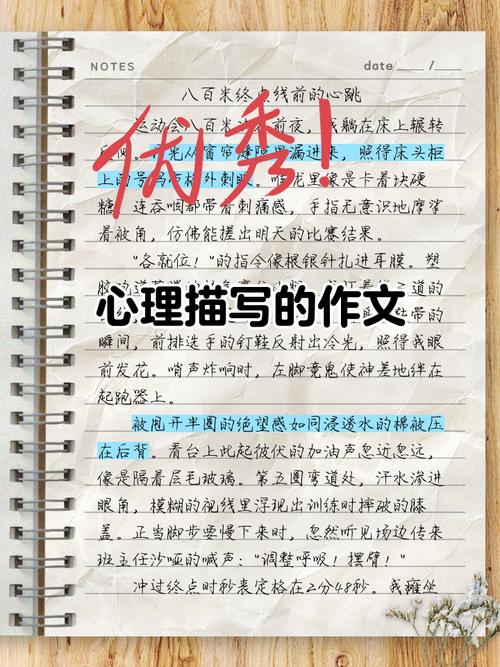 NOTES
date /
八百米终点线前的心跳
优秀!
运动会八百米 前夜，我躺在床上辗转
反 。 光从窗帘缝隙里漏进来，照得床头柜
上的号码 格外刺眼。 咙里像是卡着块硬
糖，连吞咽都带着刺痛感，手指无意识地摩挲
着被角，仿佛能搓出明天的比赛结果。
"各就位！"的指令像根银针扎进耳膜。塑
道的
心理描写的作文
带的
瞬间，前排选手的钉鞋反射出冷光，照得我眼
前发花。哨声炸响时，左脚竟鬼使神差地绊在
起跑器上。
被甩开半圆的绝望感如同浸透水的棉被压
在后背。看台上此起彼伏的加油声忽近忽远，
像是隔着层毛玻璃。第五圆弯道处，汗水渗进
眼角，模糊的视线里浮现出训练时摔破的膝
盖。正当脚步要慢下来时，忽然听见场边传来
班主任沙哑的喊声："调整呼吸！摆臂！"
冲过终点时秒表定格在2分48秒。我瘫坐